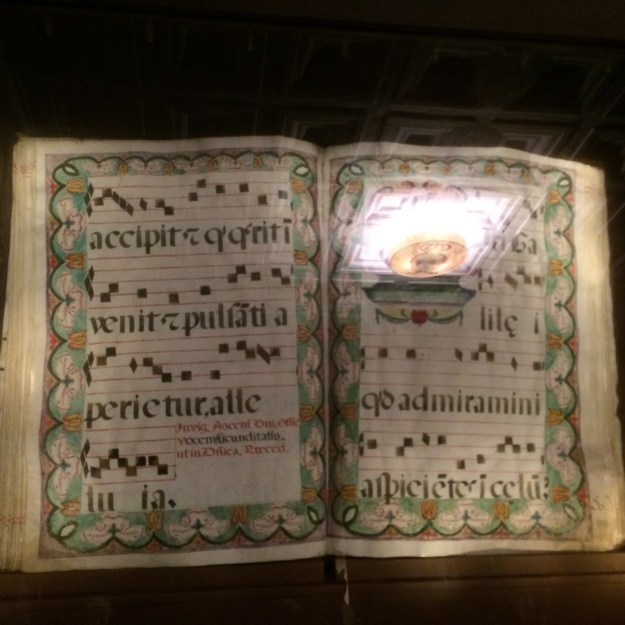 accipit ⁊ q̇ q̃rit ī
venit ⁊ pulsāti a
perietur, alle
Invig, Ascens̄ Dni, Offic̄
vocem iucunditatis.
ut in Dñica, Præced.
lu ia.
lilę i
qd admiramini
aspiciētes i celū?